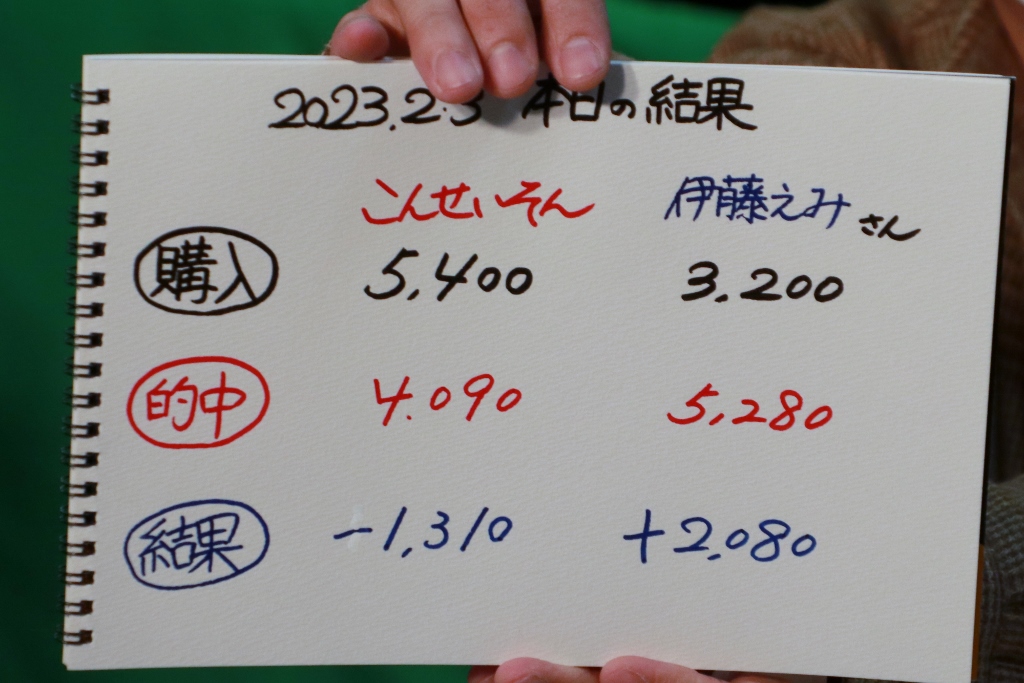 2023.2.3 本日の結果
こんせいそん 伊藤えみさん
購入 5,400 3,200
的中 4,090 5,280
結果 -1,310 +2,080